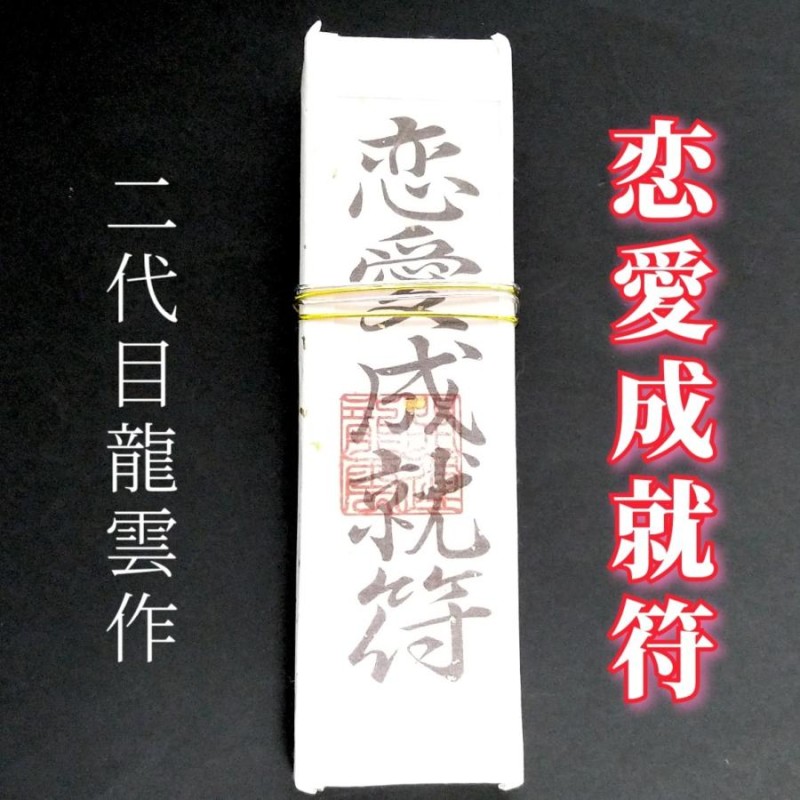 恋愛成就符
恋愛成就符
二代目龍雲作